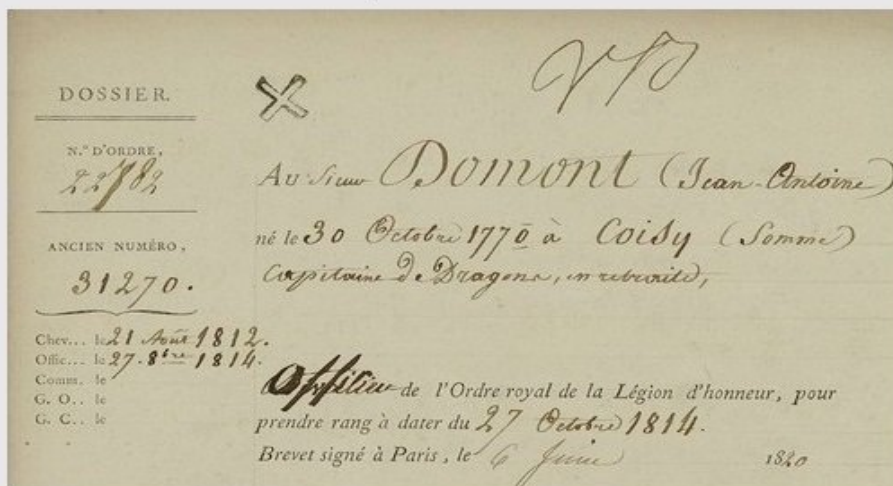 DOSSIER.
N.º D'ORDRE,
22782
ANCIEN NUMÉRO,
31270.
Chev... le 21 Août 1812.
Offic... le 27. 8bre 1814.
Comm. le
G. O.. le
G. C.. le
Au Sieur Domont (Jean-Antoine)
né le 30 Octobre 1770 à Coisy (Somme)
Capitaine de Dragons, en retraite,
Officier de l'Ordre royal de la Légion d'honneur, pour
prendre rang à dater du 27 Octobre 1814.
Brevet signé à Paris, le 6 Juin 1820